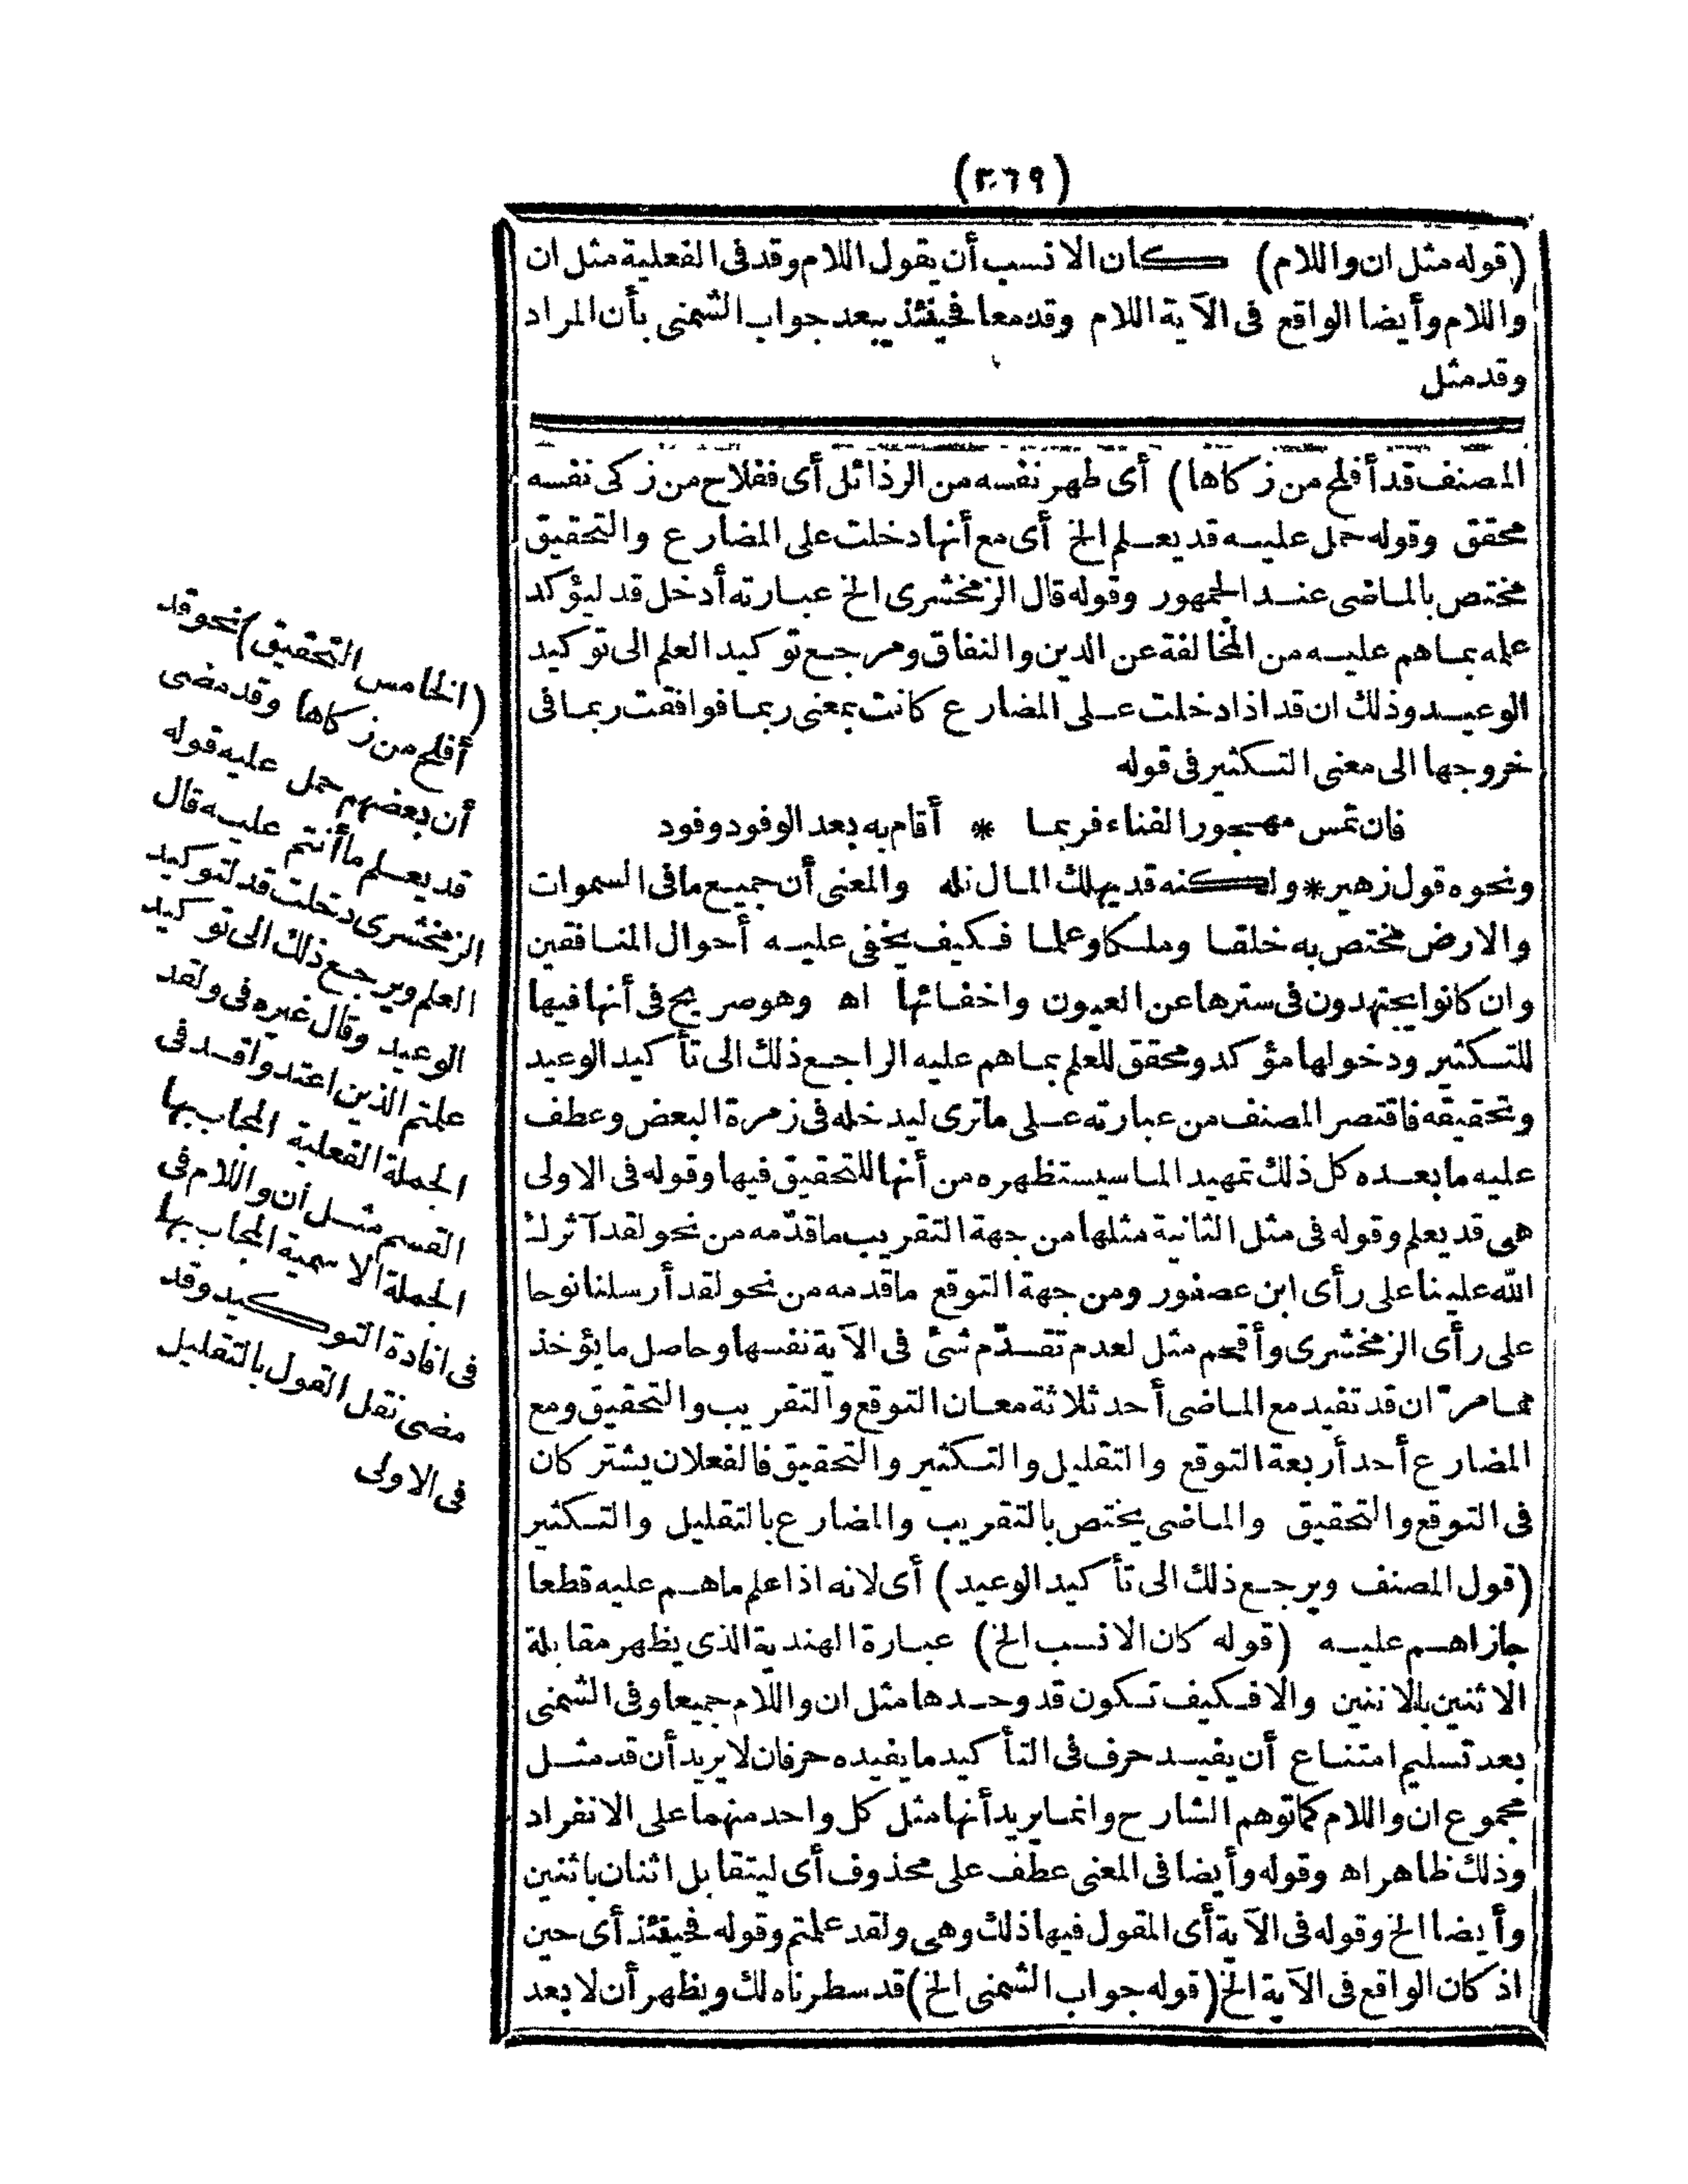 (٣٦٩)
(قوله مثل ان واللام) كان الانسب أن يقول اللام وقد فى الفعلية مثل ان
واللام وأيضا الواقع فى الآية اللام وقد معا فحينئذ يبعد جواب الشمنى بأن المراد
وقد مثل
المصنف قد أفلح من زكاها) أى طهر نفسه من الرذائل أى ففلاح من زكى نفسه
محقق وقوله حمل عليه قد يعلم الخ أى مع أنها دخلت على المضارع والتحقيق
مختص بالماضى عند الجمهور وقوله قال الزمخشرى الخ عبارته أدخل قد ليؤكد
علمه بما هم عليه من المخالفة عن الدين والنفاق ومرجع توكيد العلم الى توكيد
الوعيد وذلك ان قد اذا دخلت على المضارع كانت بمعنى ربما فوافقت ربما فى
خروجها الى معنى التكثير فى قوله
فان تمس مهجور الفناء فربما * أقام به بعد الوفود وفود
ونحوه قول زهير * ولكنه قد يهلك المال نله والمعنى أن جميع ما فى السموات
والارض مختص به خلقا وملكا وعلما فكيف يخفى عليه أحوال المنافقين
وان كانوا يجتهدون فى سترها عن العيون واخفائها اه وهو صريح فى أنها فيها
للتكثير ودخولها مؤكد ومحقق للعلم بما هم عليه الراجع ذلك الى تأكيد الوعيد
وتحقيقه فاقتصر المصنف من عبارته على ما ترى ليدخله فى زمرة البعض وعطف
عليه ما بعده كل ذلك تمهيد لما سيستظهره من أنها للتحقيق فيها وقوله فى الاولى
هى قد يعلم وقوله فى مثل الثانية مثلها من جهة التقريب ما قدّمه من نحو لقد آثرك
الله علينا على رأى ابن عصفور ومن جهة التوقع ما قدمه من نحو لقد أرسلنا نوحا
على رأى الزمخشرى وأقحم مثل لعدم تقدّم شئ فى الآية نفسها وحاصل ما يؤخذ
مما مرّ ان قد تفيد مع الماضى أحد ثلاثة معان التوقع والتقريب والتحقيق ومع
المضارع أحد أربعة التوقع والتقليل والتكثير والتحقيق فالفعلان يشتركان
فى التوقع والتحقيق والماضى يختص بالتقريب والمضارع بالتقليل والتكثير
(قول المصنف ويرجع ذلك الى تأكيد الوعيد) أى لانه اذا علم ما هم عليه قطعا
جازاهم عليه (قوله كان الانسب الخ) عبارة الهندية الذى يظهر مقابلة
الاثنين بالاثنين والا فكيف تكون قد وحدها مثل ان واللام جميعا وفى الشمنى
بعد تسليم امتناع أن يفيد حرف فى التأكيد ما يفيده حرفان لا يريد أن قد مثل
مجموع ان واللام كما توهم الشارح وانما يريد أنها مثل كل واحد منهما على الانفراد
وذلك ظاهر اه وقوله وأيضا فى المعنى عطف على محذوف أى ليتقابل اثنان باثنين
وأيضا الخ وقوله فى الآية أى المقول فيها ذلك وهى ولقد علمتم وقوله فحينئذ أى حين
اذ كان الواقع فى الآية الخ (قوله جواب الشمنى الخ) قد سطرناه لك ويظهر أن لا بعد
(الخامس التحقيق) نحو قد
أفلح من زكاها وقد مضى
أن بعضهم حمل عليه قوله
قد يعلم ما أنتم عليه قال
الزمخشرى دخلت قد لتوكيد
العلم ويرجع ذلك الى توكيد
الوعيد وقال غيره فى ولقد
علمتم الذين اعتدوا قد فى
الجملة الفعلية المجاب بها
القسم مثل أن واللام فى
الجملة الاسمية المجاب بها
فى افادة التوكيد وقد
مضى نقل القول بالتقليل
فى الاولى